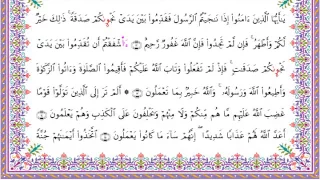 يَٰٓأَيُّهَا ٱلَّذِينَ ءَامَنُوٓا۟ إِذَا نَٰجَيْتُمُ ٱلرَّسُولَ فَقَدِّمُوا۟ بَيْنَ يَدَىْ نَجْوَىٰكُمْ صَدَقَةً ۚ ذَٰلِكَ خَيْرٌ
لَّكُمْ وَأَطْهَرُ ۚ فَإِن لَّمْ تَجِدُوا۟ فَإِنَّ ٱللَّهَ غَفُورٌ رَّحِيمٌ ءَأَشْفَقْتُمْ أَن تُقَدِّمُوا۟ بَيْنَ يَدَىْ
نَجْوَىٰكُمْ صَدَقَٰتٍ ۚ فَإِذْ لَمْ تَفْعَلُوا۟ وَتَابَ ٱللَّهُ عَلَيْكُمْ فَأَقِيمُوا۟ ٱلصَّلَوٰةَ وَءَاتُوا۟ ٱلزَّكَوٰةَ
وَأَطِيعُوا۟ ٱللَّهَ وَرَسُولَهُۥ ۚ وَٱللَّهُ خَبِيرٌۢ بِمَا تَعْمَلُونَ ۞ أَلَمْ تَرَ إِلَى ٱلَّذِينَ تَوَلَّوْا۟ قَوْمًا
غَضِبَ ٱللَّهُ عَلَيْهِم مَّا هُم مِّنكُمْ وَلَا مِنْهُمْ وَيَحْلِفُونَ عَلَى ٱلْكَذِبِ وَهُمْ يَعْلَمُونَ
أَعَدَّ ٱللَّهُ لَهُمْ عَذَابًا شَدِيدًا ۖ إِنَّهُمْ سَآءَ مَا كَانُوا۟ يَعْمَلُونَ ٱتَّخَذُوٓا۟ أَيْمَٰنَهُمْ جُنَّةً